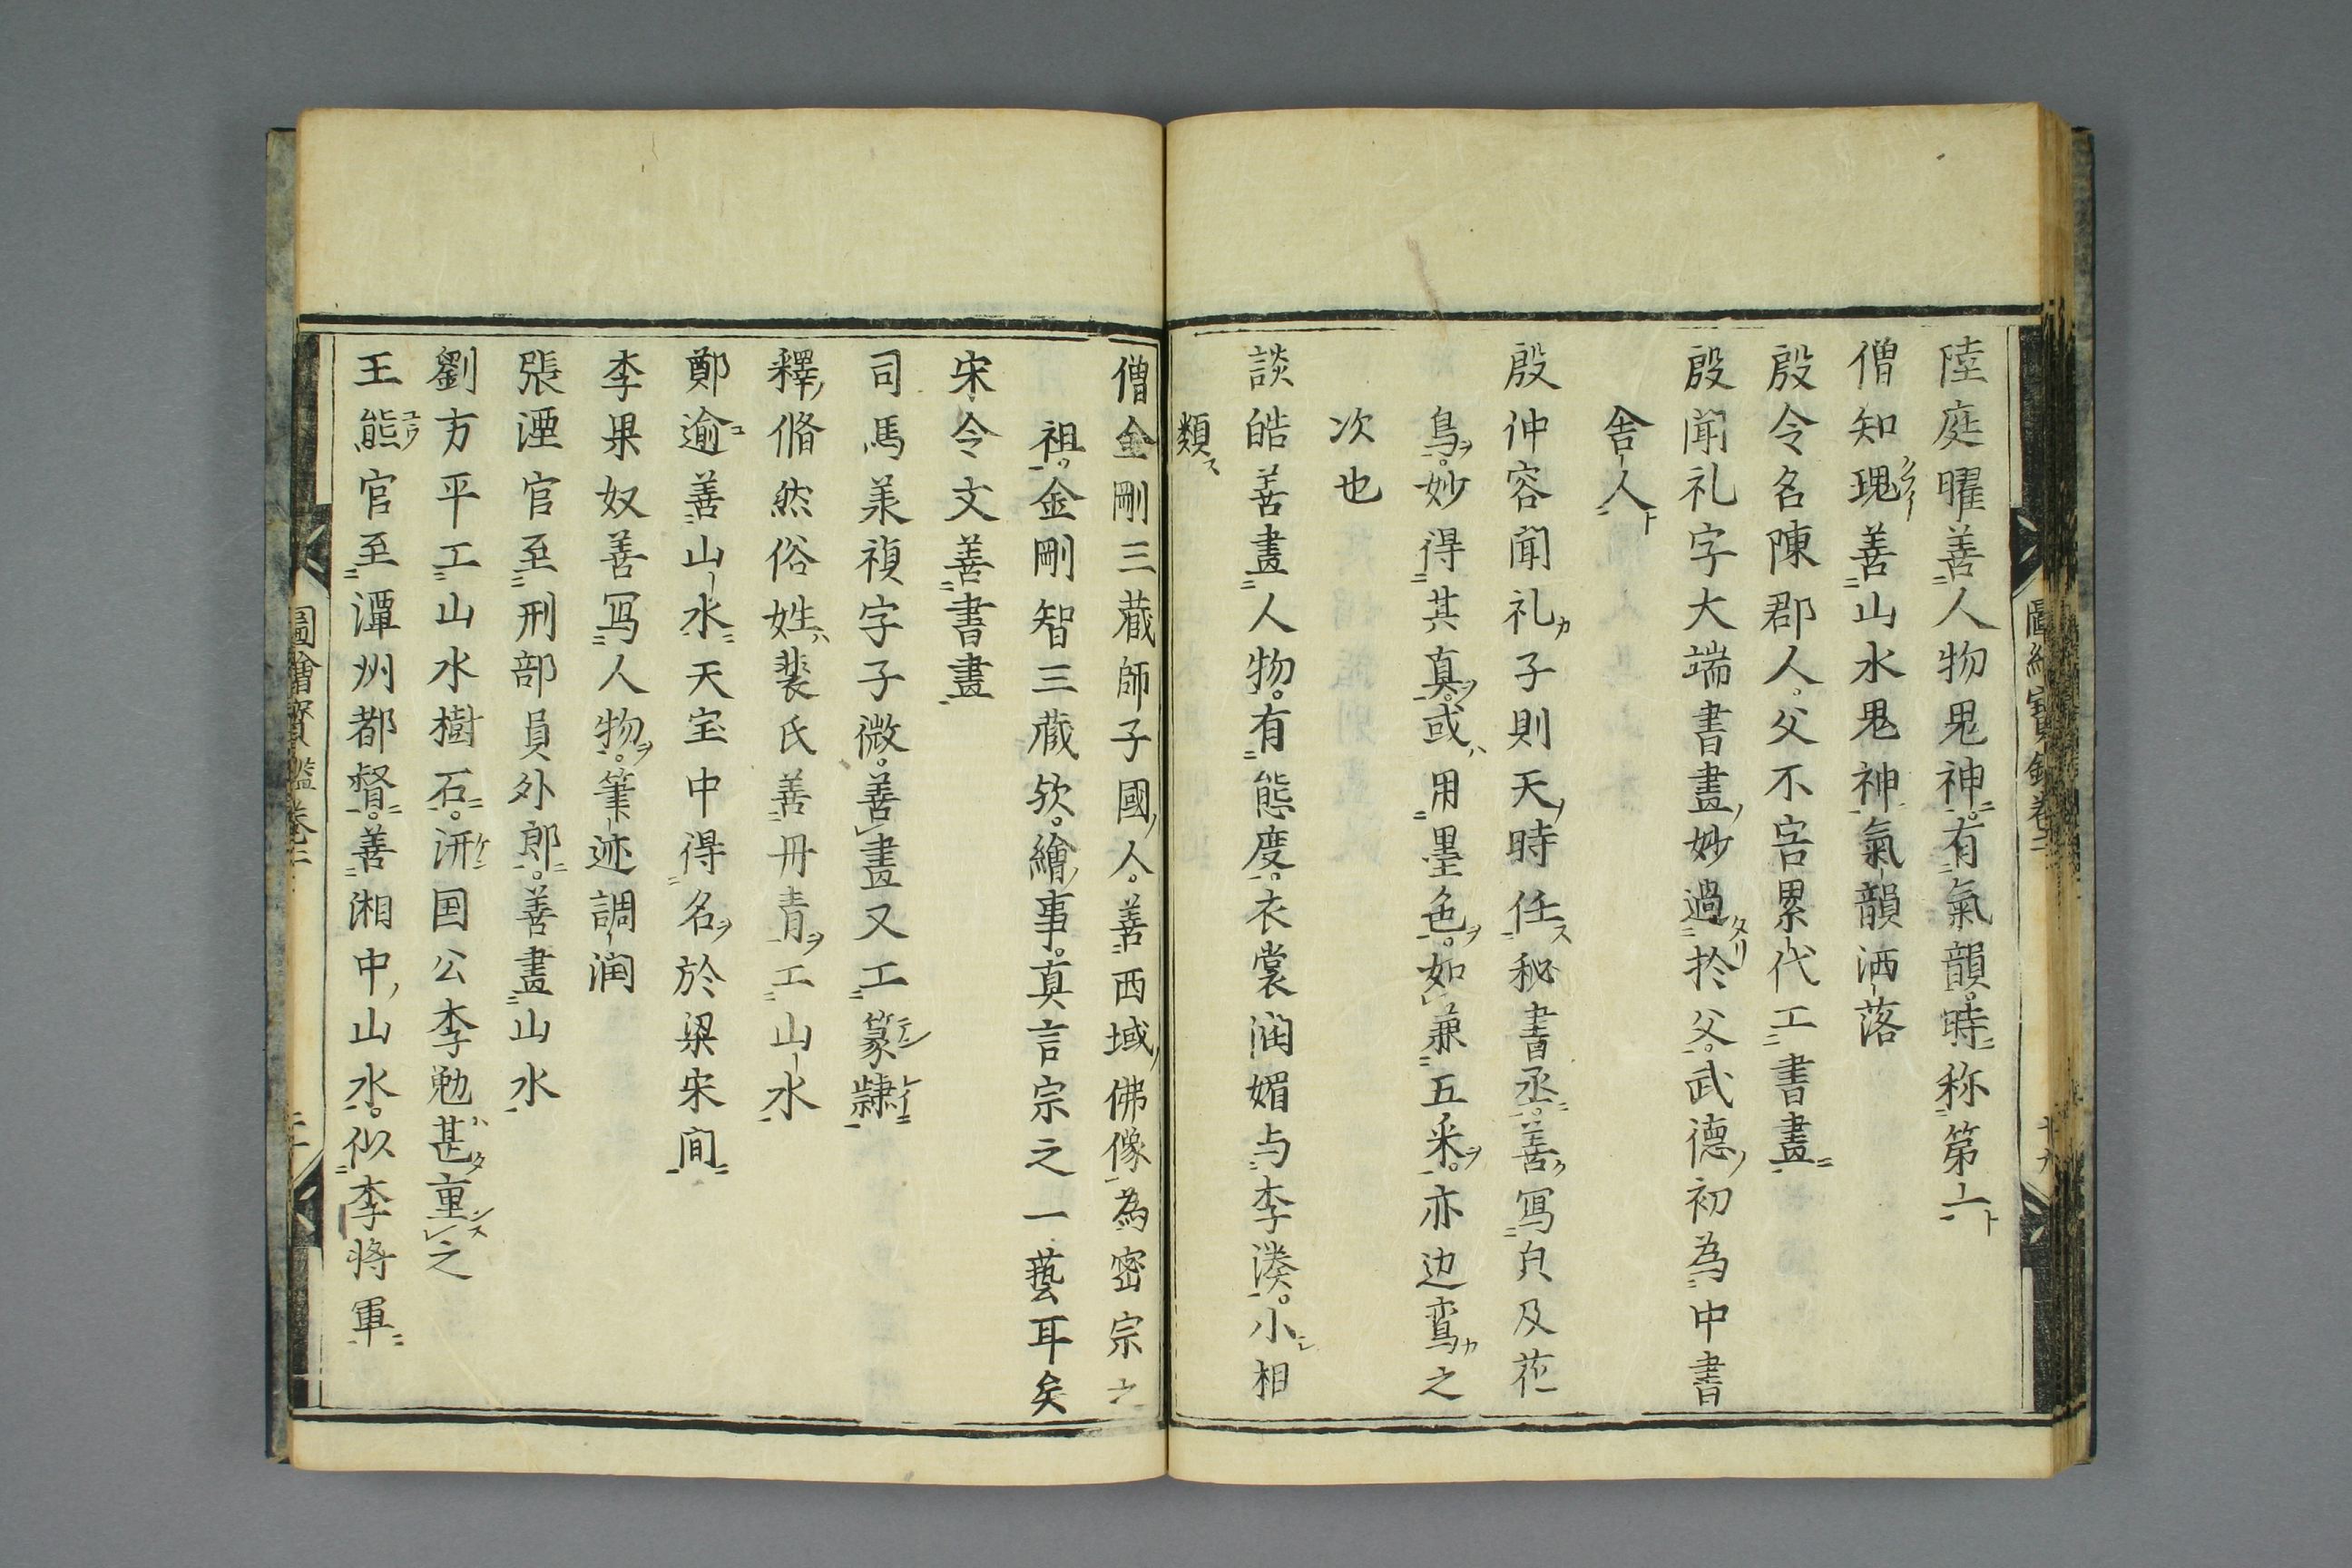 陸庭曜善人物鬼神有氣韻時称第一ト
僧知瑰善山水鬼神氣韻洒落
殷令名陳郡人父不害累代工書畫
殷聞礼字大端書畫妙過於父武德初為中書
舎人
殷仲容聞礼子則天時任秘書丞善写皃及花
鳥妙得其真或用墨色如兼五釆亦边鸞之
次也
談皓善畫人物有態度衣裳润媚与李湊小相
類
僧金剛三蔵師子國人善西域佛像為密宗之
祖金剛智三蔵欤繪事真言宗之一藝耳矣
宋令文善書畫
司馬美禎字子微善畫又工篆隷
釋翛然俗姓裴氏善丹青工山水
鄭逾善山水天宝中得名於梁宋间
李果奴善写人物筆迹調润
張湮官至刑部員外郎善畫山水
劉方平工山水樹石汧国公李勉甚重之
王熊官至潭州都督善湘中山水似李将軍
圖繪寳鑑卷二